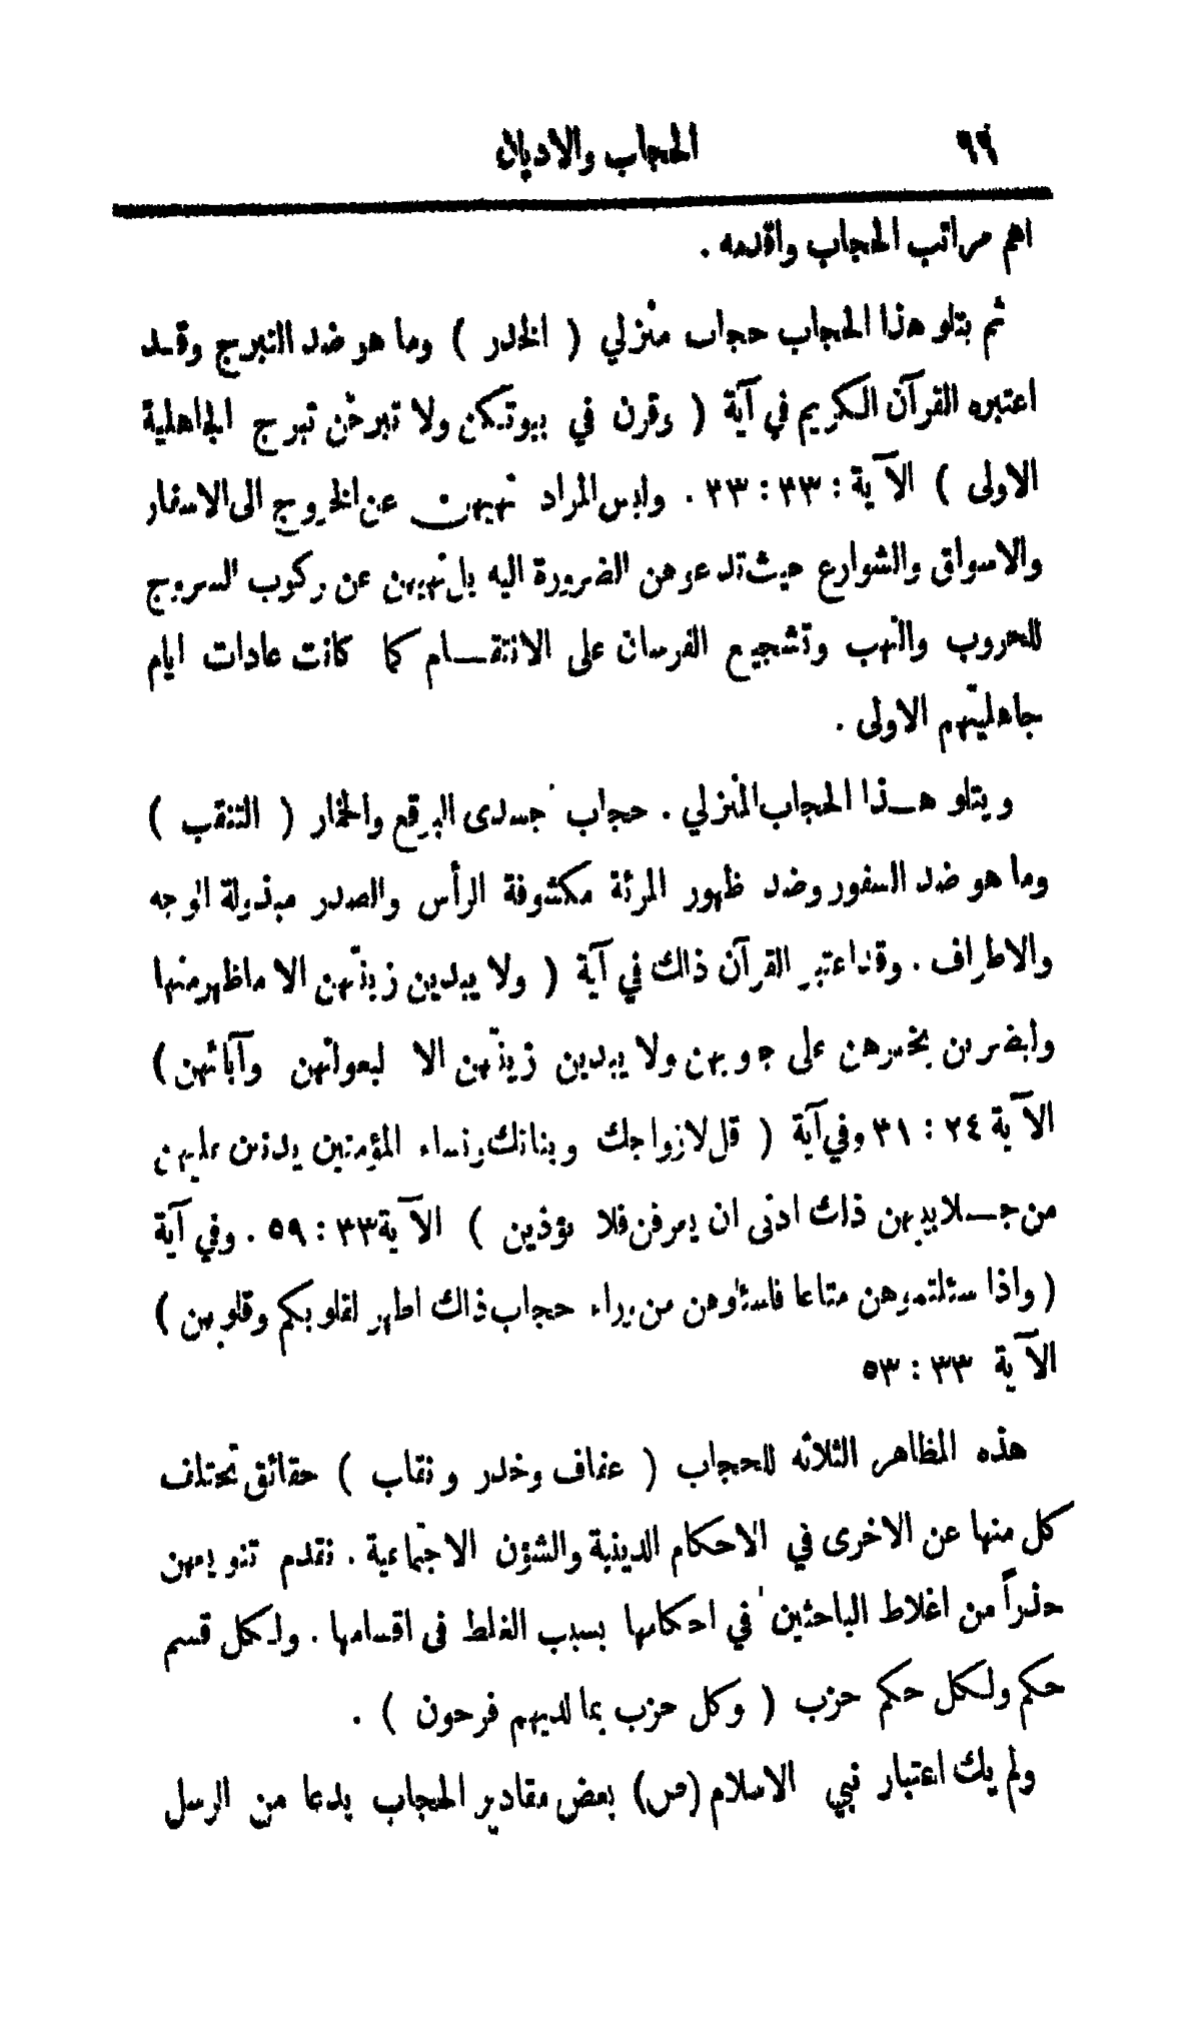 ٦٩ الحجاب والاديان
اهم مراتب الحجاب واقدمه .
ثم يتلو هذا الحجاب حجاب منزلي ( الخدر ) وما هو ضد التبرج وقد
اعتبره القرآن الكريم في آية ( وقرن في بيوتكن ولا تبرجن تبرج الجاهلية
الاولى ) الآية : ٣٣ : ٣٣ . وليس المراد نهيهن عن الخروج الى الاسفار
والاسواق والشوارع حيث تدعوهن الضرورة اليه بل نهيهن عن ركوب السروج
للحروب والنهب وتشجيع الفرسان على الانتقام كما كانت عادات ايام
جاهليتهم الاولى .
ويتلو هذا الحجاب المنزلي . حجاب جسدى البرقع والخمار ( التنقب )
وما هو ضد السفور وضد ظهور المرئة مكشوفة الرأس والصدر مبذولة الوجه
والاطراف . وقد اعتبر القرآن ذالك في آية ( ولا يبدين زينتهن الا ماظهر منها
وليضربن بخمرهن على جيوبهن ولا يبدين زينتهن الا لبعولتهن وآبائهن )
الآية ٢٤ : ٣١ وفي آية ( قل لازواجك وبناتك ونساء المؤمنين يدنين عليهن
من جلابيبهن ذلك ادنى ان يعرفن فلا يؤذين ) الآية ٣٣ : ٥٩ . وفي آية
( واذا سئلتموهن متاعا فاسئلوهن من وراء حجاب ذالك اطهر لقلوبكم وقلوبهن )
الآية ٣٣ : ٥٣
هذه المظاهر الثلاثه للحجاب ( عفاف وخدر ونقاب ) حقائق تختلف
كل منها عن الاخرى في الاحكام الدينية والشؤن الاجتماعية . نقدم تنويعهن
حذراً من اغلاط الباحثين في احكامها بسبب الغلط فى اقسامها . ولكل قسم
حكم ولكل حكم حزب ( وكل حزب بما لديهم فرحون ) .
ولم يك اعتبار نبي الاسلام (ص) بعض مقادير الحجاب بدعا من الرسل